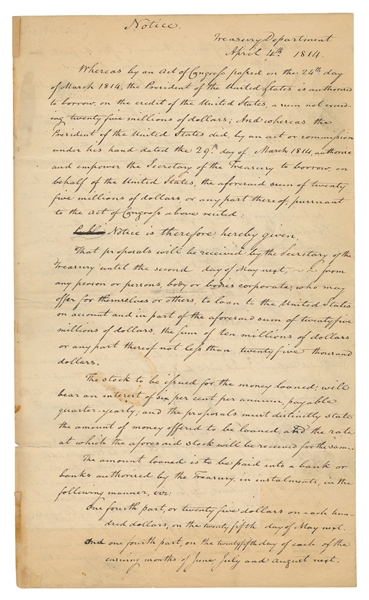 Notice.
Treasury Department
April 4th 1814
Whereas by an Act of Congress passed on the 24th day
of March 1814, the President of the United States is authorised
to borrow, on the credit of the United States, a sum not exceed-
ing twenty five millions of dollars; And whereas the
President of the United States did, by an act or commission
under his hand dated the 29th day of March 1814, authorise
and empower the Secretary of the Treasury to borrow, on
behalf of the United States, the aforesaid sum of twenty
five millions of dollars or any part thereof, pursuant
to the act of Congress above recited:
Notice is therefore hereby given,
That proposals will be received by the Secretary of the
Treasury until the second day of May next, from
any person or persons, body or bodies corporate, who may
offer for themselves or others, to loan to the United States
on account and in part of the aforesaid sum of twenty five
millions of dollars, the sum of ten millions of dollars
or any part thereof not less than twenty five thousand
dollars.
The stock to be issued for the money loaned, will
bear an interest of six per cent per annum, payable
quarter-yearly, and the proposals must distinctly state
the amount of money offered to be loaned, and the rate
at which the aforesaid stock will be received for the same.
The amount loaned is to be paid into a bank or
banks authorised by the Treasury, in instalments, in the
following manner, viz:
One fourth part, or twenty five dollars on each hun-
dred dollars, on the twenty fifth day of May next.
And one fourth part, on the twentyfifth day of each of the
ensuing months of June, July and August next.